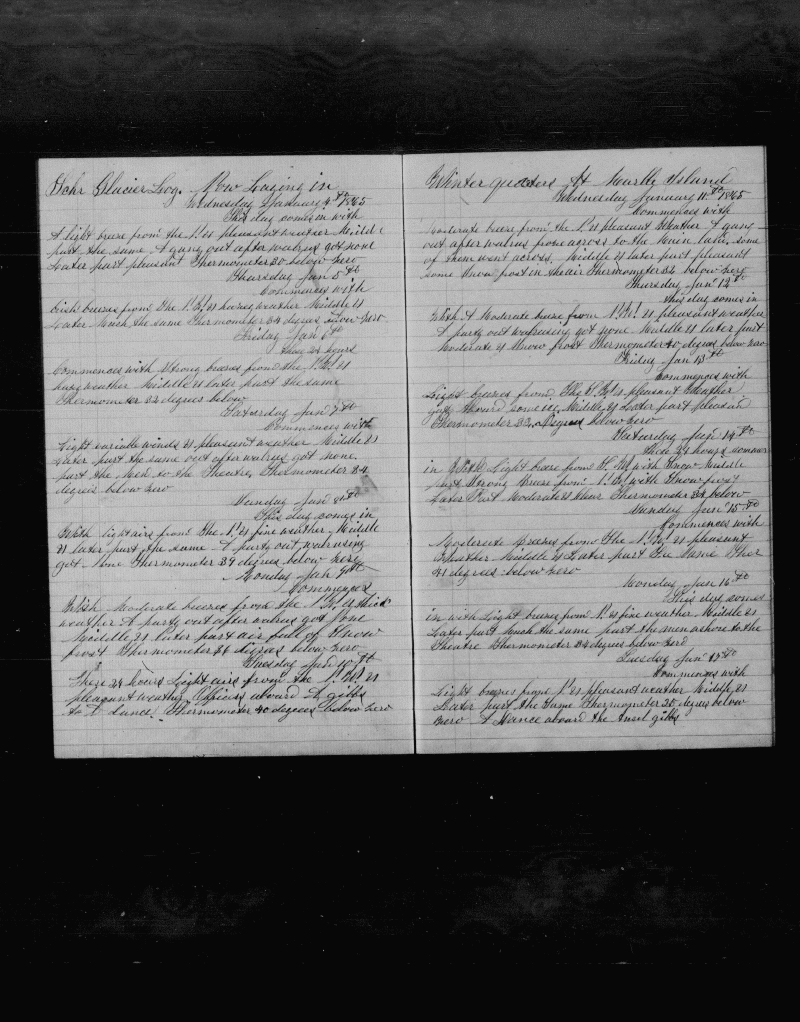 Glacier Log. Now Laying in
Wednesday January 4th 1865
This day comes in with
A light breeze from the N. & pleasant weather Middle
part the same A gang out after walrus got none
Later part pleasant Thermometer 30 below zero
Thursday Jan 5th
Commences with
brisk breezes from the N.W. & weather Middle &
Later Much the same Thermometer 34 degrees below zero
Friday Jan 6th
these 24 hours
Commences with Strong breezes from the N.W. &
hazy weather Middle & later part the same
Thermometer 32 degrees below
Saturday Jan 7th
Commences with
Light variable winds & pleasant weather Middle &
Later part the same out after walrus got none
part the Men to the Theatre Thermometer 34
degrees below zero
Sunday Jan 8th
This day comes in
With light airs from the N. & fine weather Middle
& later part the same A party out walrusing
got None Thermometer 39 degrees below zero
Monday Jan 9th
Commences
With Moderate breezes from the N.W. & thick
weather A party out after walrus got None
Middle & later part air full of Snow
frost Thermometer 34 degrees below zero
Tuesday Jan 10th
These 24 hours Light airs from the N.W. &
pleasant weather Officers aboard A gifts
to A dance. Thermometer 40 degrees below zero
Winter quarters At Marble Island
Wednesday January 11th 1865
Commences with
Moderate breeze from the N. & pleasant Weather A gang
out after walrus from across to the Main land, some
of them went across. Middle & later part pleasant
some Snow frost in the air Thermometer 34 below zero
Thursday Jan 12th
this day comes in
With A Moderate breeze from N.W. & pleasant weather
A party out walrusing got none Middle & later part
Moderate & Snow frost Thermometer 40 degrees below zero
Friday Jan 13th
Commences with
Light breezes from the N.W. & pleasant Weather
gang aboard some ice Middle & Later part pleasant
Thermometer 32 degrees below zero
Saturday Jan 14th
these 24 hours comes
in With Light breeze from S.W. with Snow Middle
part Strong breeze from N.W. with Snow frost
Later Part Moderate & Clear Thermometer 34 below
Sunday Jan 15th
Commences with
Moderate Breezes from the N.W. & pleasant
Weather Middle & Later part the Same Ther
41 degrees below zero
Monday Jan 16th
This day comes
in with Light breezes from N. & fine weather Middle &
Later part Much the same part the men ashore to the
Theatre Thermometer 32 degrees below zero
Tuesday Jan 17th
Commences with
Light breezes from N. & pleasant weather Middle &
Later part the Same Thermometer 30 degrees below
Zero A Dance aboard the Ansel gibbs